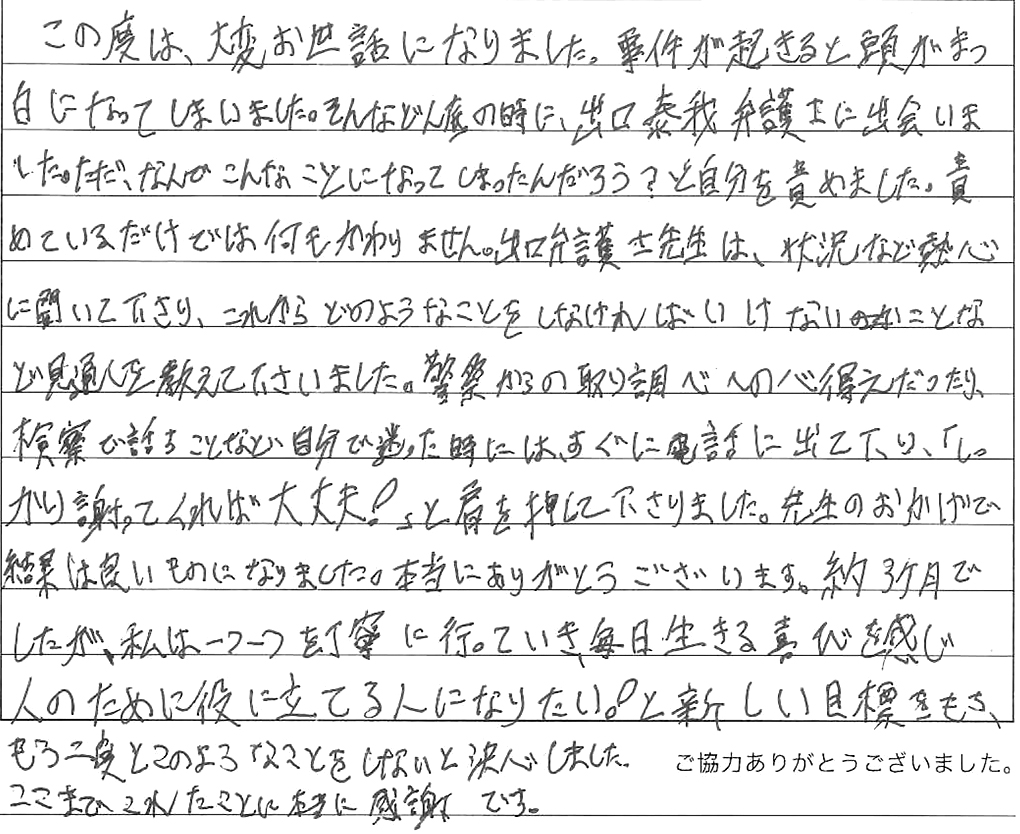 この度は、大変お世話になりました。事件が起きると頭がまっ
白になってしまいました。そんなどん底の時に、出口泰我弁護士に出会いま
した。ただ、なんでこんなことになってしまったんだろう？と自分を責めました。責
めているだけでは何もかわりません。出口弁護士先生は、状況など熱心
に聞いて下さり、これからどのようなことをしなければいけないことな
ど見通しを教えて下さいました。警察からの取り調べへの心得えだったり、
検察で話すことなど自分で迷った時には、すぐに電話に出て下さり、「しっ
かり謝ってくれば大丈夫！」と肩を押して下さりました。先生のおかげで
結果は良いものになりました。本当にありがとうございます。約3ケ月で
したが、私は一つ一つを丁寧に行っていき、毎日生きる喜びを感じ
人のために役に立てる人になりたい！と新しい目標をもち、
もう二度とこのようなことをしないと決心しました。
ご協力ありがとうございました。
ここまでこれたことに本当に感謝です。